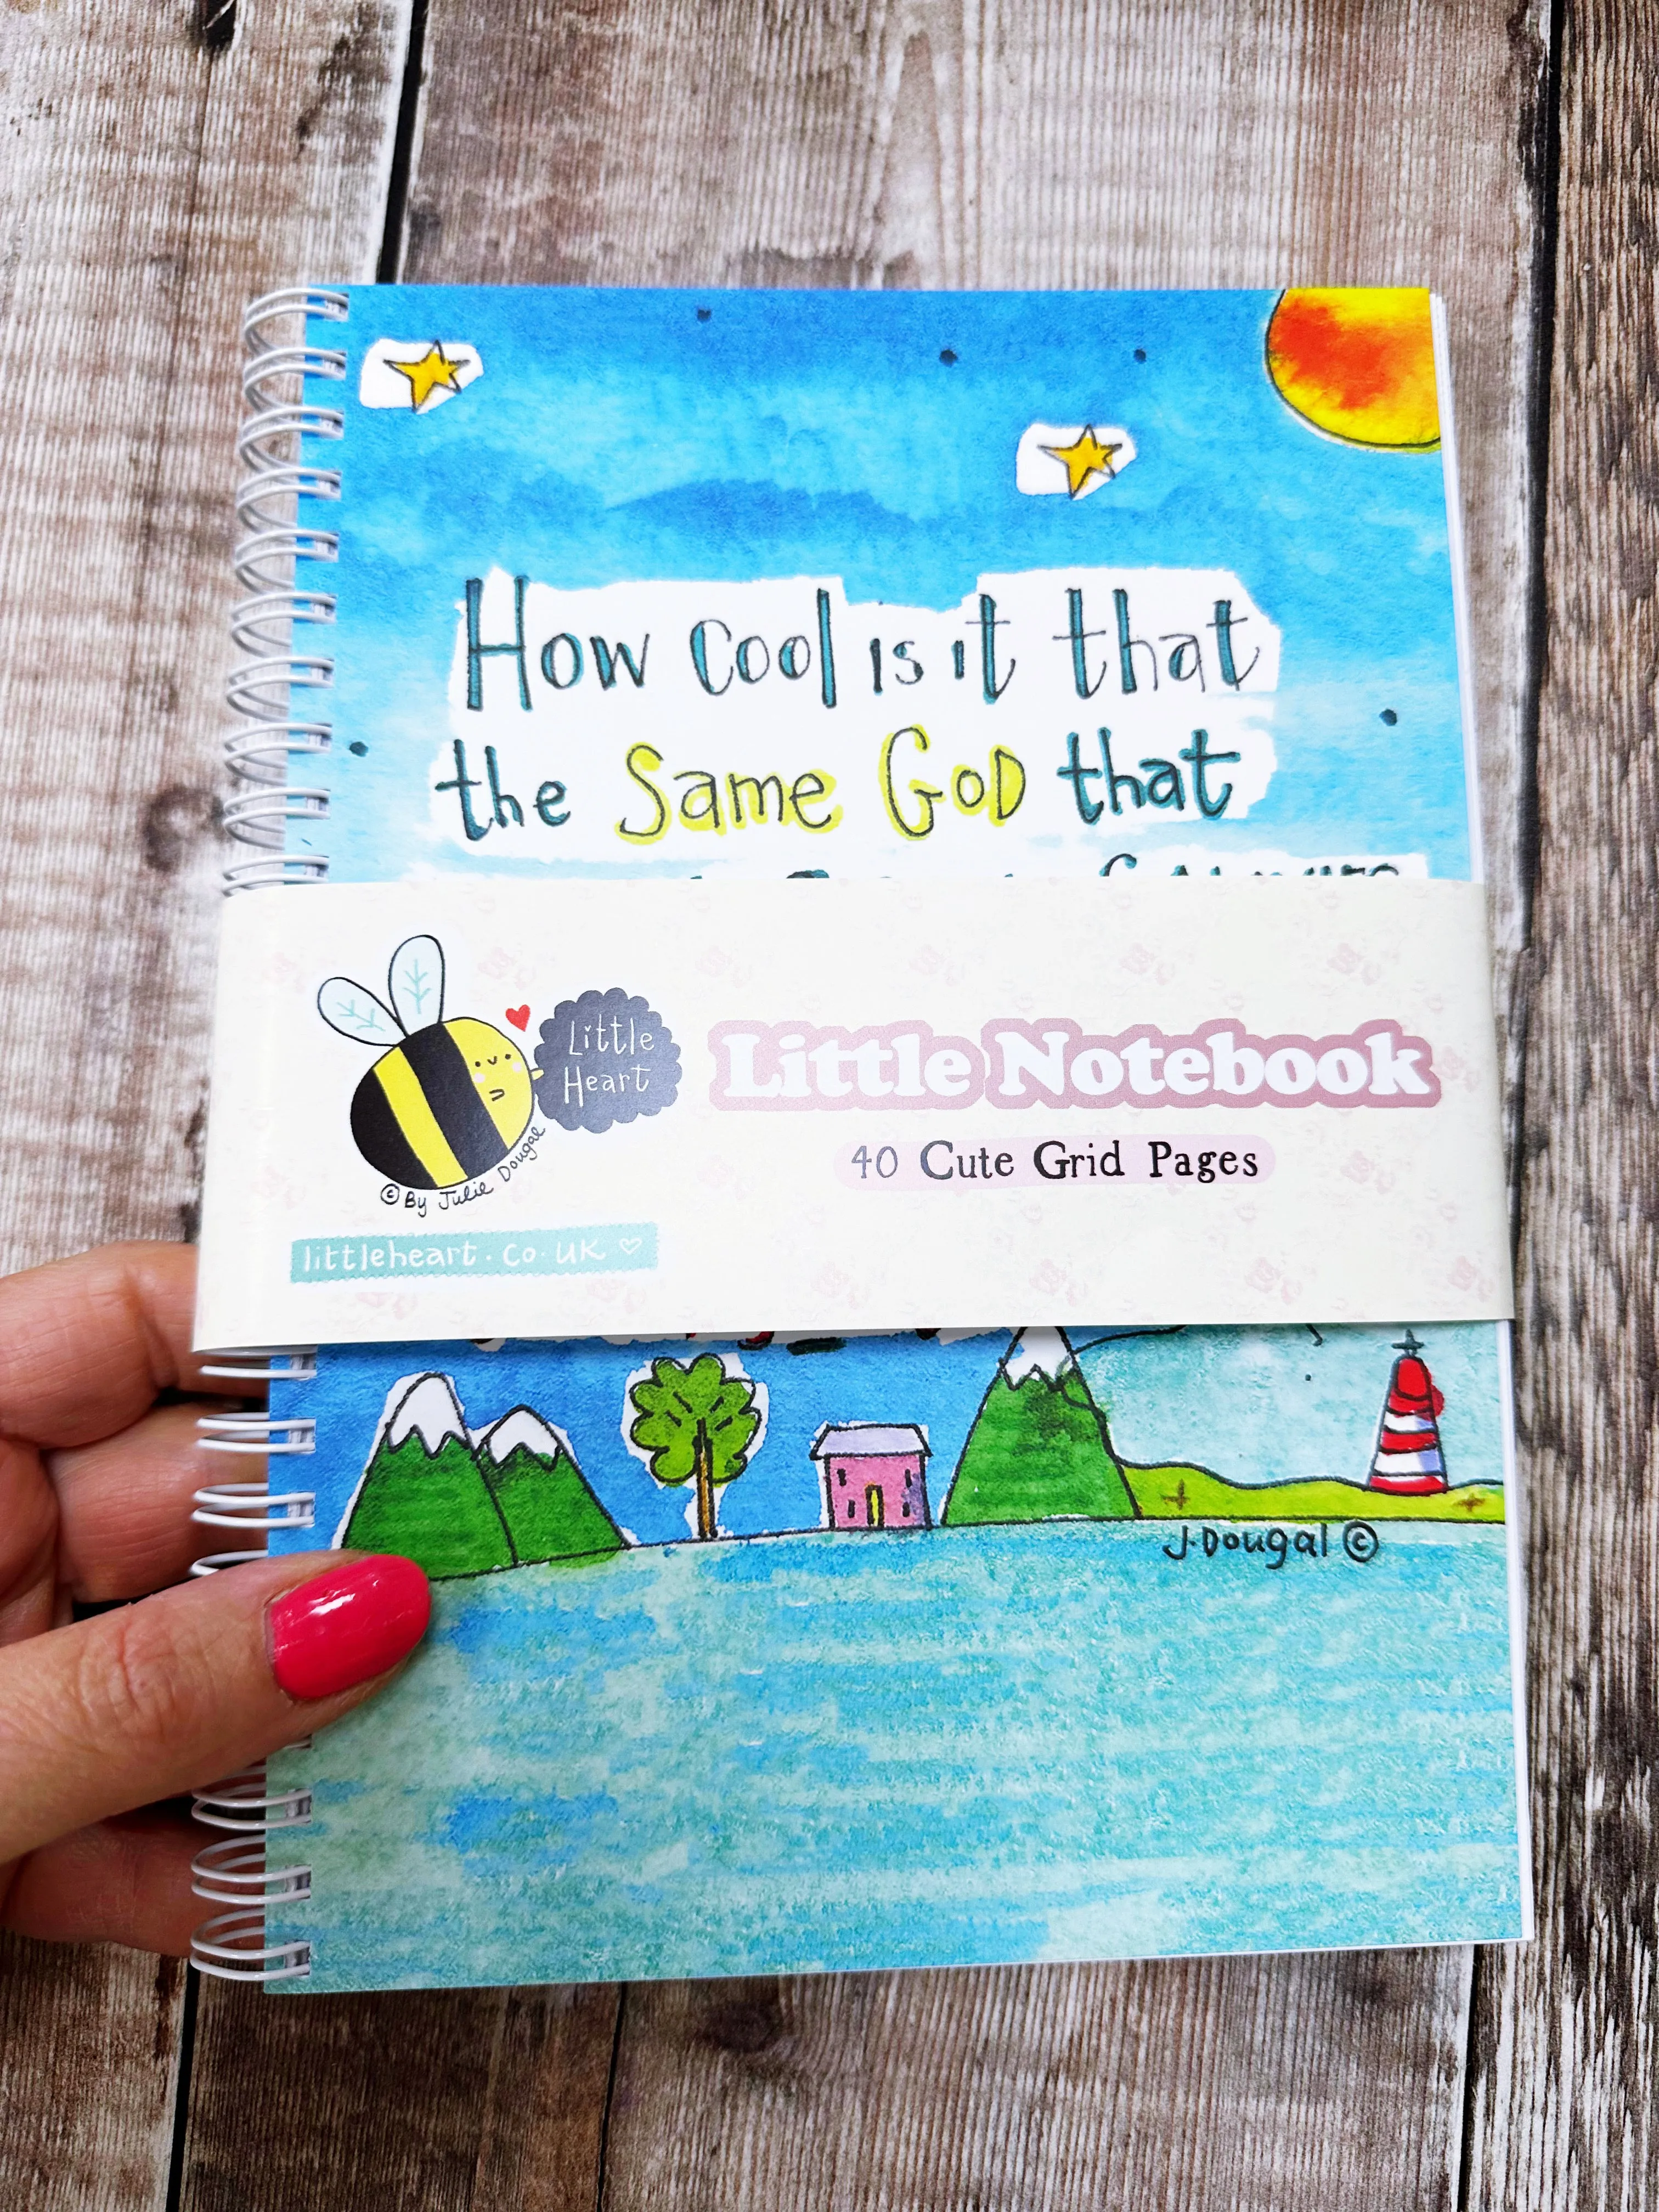 How cool is it that
the Same GoD that
Little
Heart
© By Julie Dougal
littleheart.co.uk
Little Notebook
40 Cute Grid Pages
J.Dougal ©